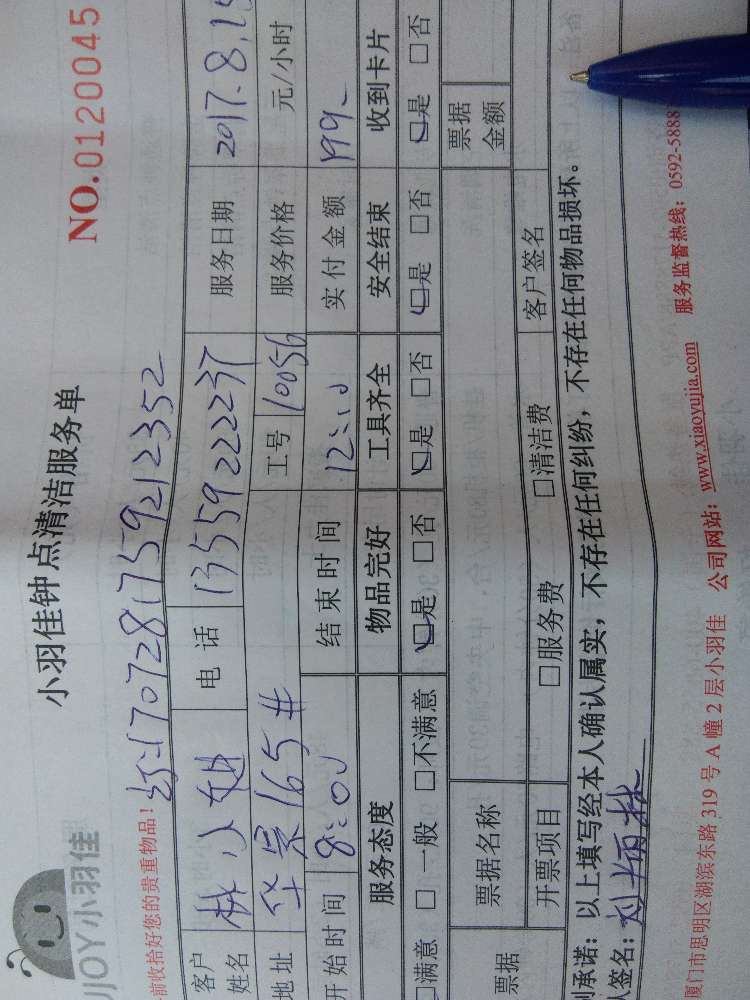 小羽佳钟点清洁服务单
NO.0120045
UJOY小羽佳
前收拾好您的贵重物品!
1707281759212352
客户姓名 林小姐 电话 13559222237 服务日期 2017.8.15
地址 165# 工号 10056 服务价格 元/小时
开始时间 8:00 结束时间 12:10 实付金额 199-
服务态度 物品完好 工具齐全 安全结束 收到卡片
满意 □一般 □不满意 □是 □否 □是 □否 □是 □否 □是 □否
票据 票据名称 票据金额
开票项目 □服务费 □清洁费 客户签名
承诺：以上填写经本人确认属实，不存在任何纠纷，不存在任何物品损坏。
人签名：
厦门市思明区湖滨东路 319 号 A 幢 2 层小羽佳 公司网站：www.xiaoyujia.com 服务监督热线：0592-5888